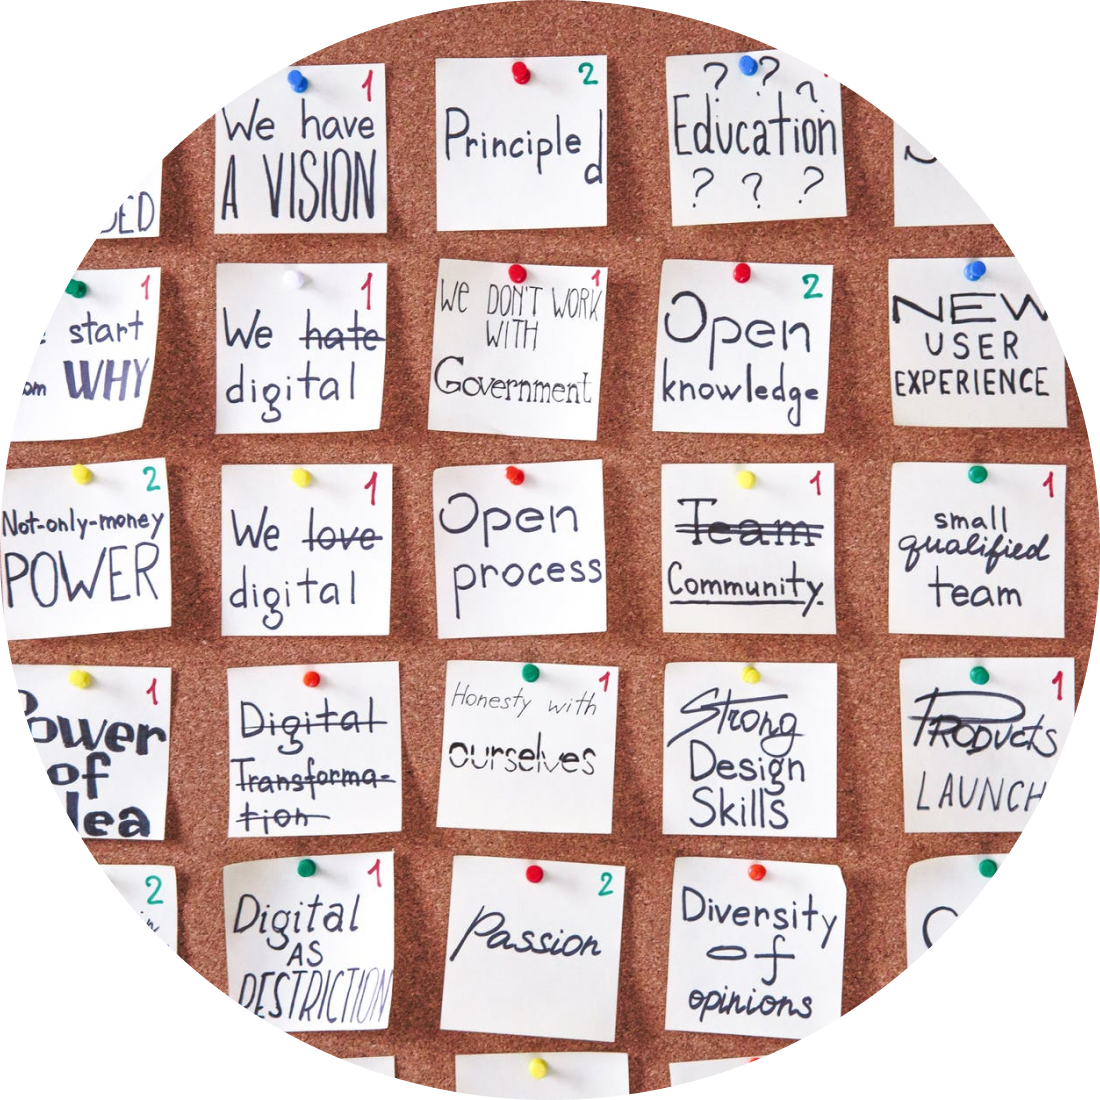 1
We have
A VISION
2
Principled
? ? ?
Education
? ? ?
1
start
WHY
1
We hate
digital
1
WE DON'T WORK
WITH
Government
2
Open
knowledge
NEW
USER
EXPERIENCE
2
Not-only-money
POWER
1
We love
digital
Open
process
1
Team
Community.
1
small
qualified
team
1
Power
of
Idea
Digital
Transforma-
tion
1
Honesty with
ourselves
Strong
Design
Skills
1
Products
LAUNCH
2
1
Digital
AS
RESTRICTION
2
Passion
Diversity
of
opinions